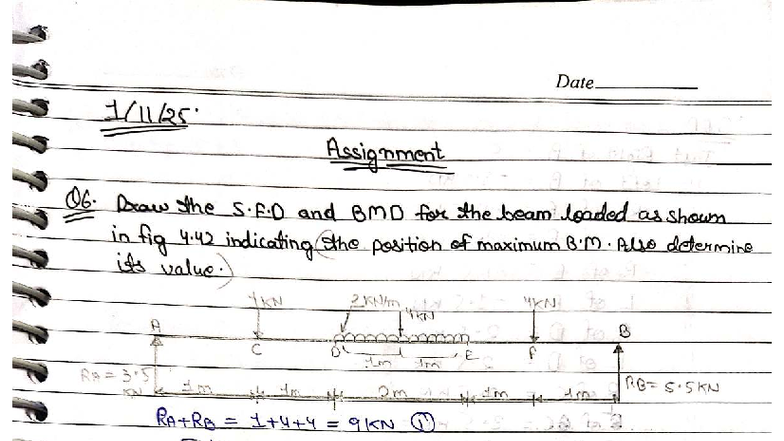 Date
1/11/25.
Assignment
Q6. Draw the S.F.D and BMD for the beam loaded as shown
in fig 4.42 indicating (the position of maximum B.M. Also determine
its value.)
1KN 2KN/m 4KN 4KN
A C D E F B
1m 1m
RA = 3.5 KN 1m 1m 2m 1m 1m RB = 5.5KN
RA+RB = 1+4+4 = 9KN ①